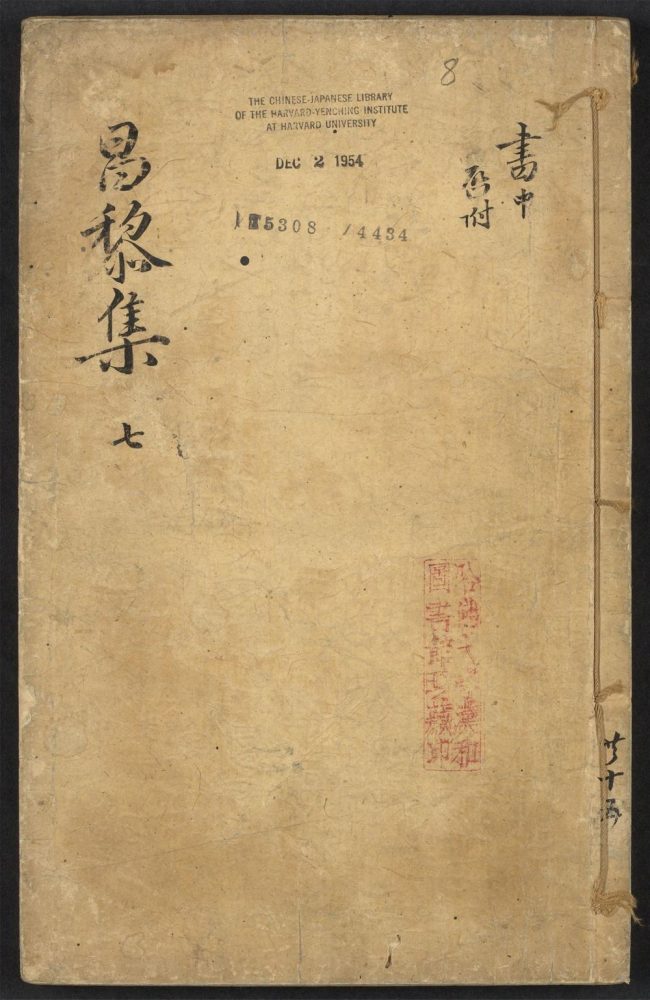 8
THE CHINESE-JAPANESE LIBRARY
OF THE HARVARD-YENCHING INSTITUTE
AT HARVARD UNIVERSITY
DEC 2 1954
5308 /4434
書中
附
昌黎集
七
漢和
圖書館藏印
共十